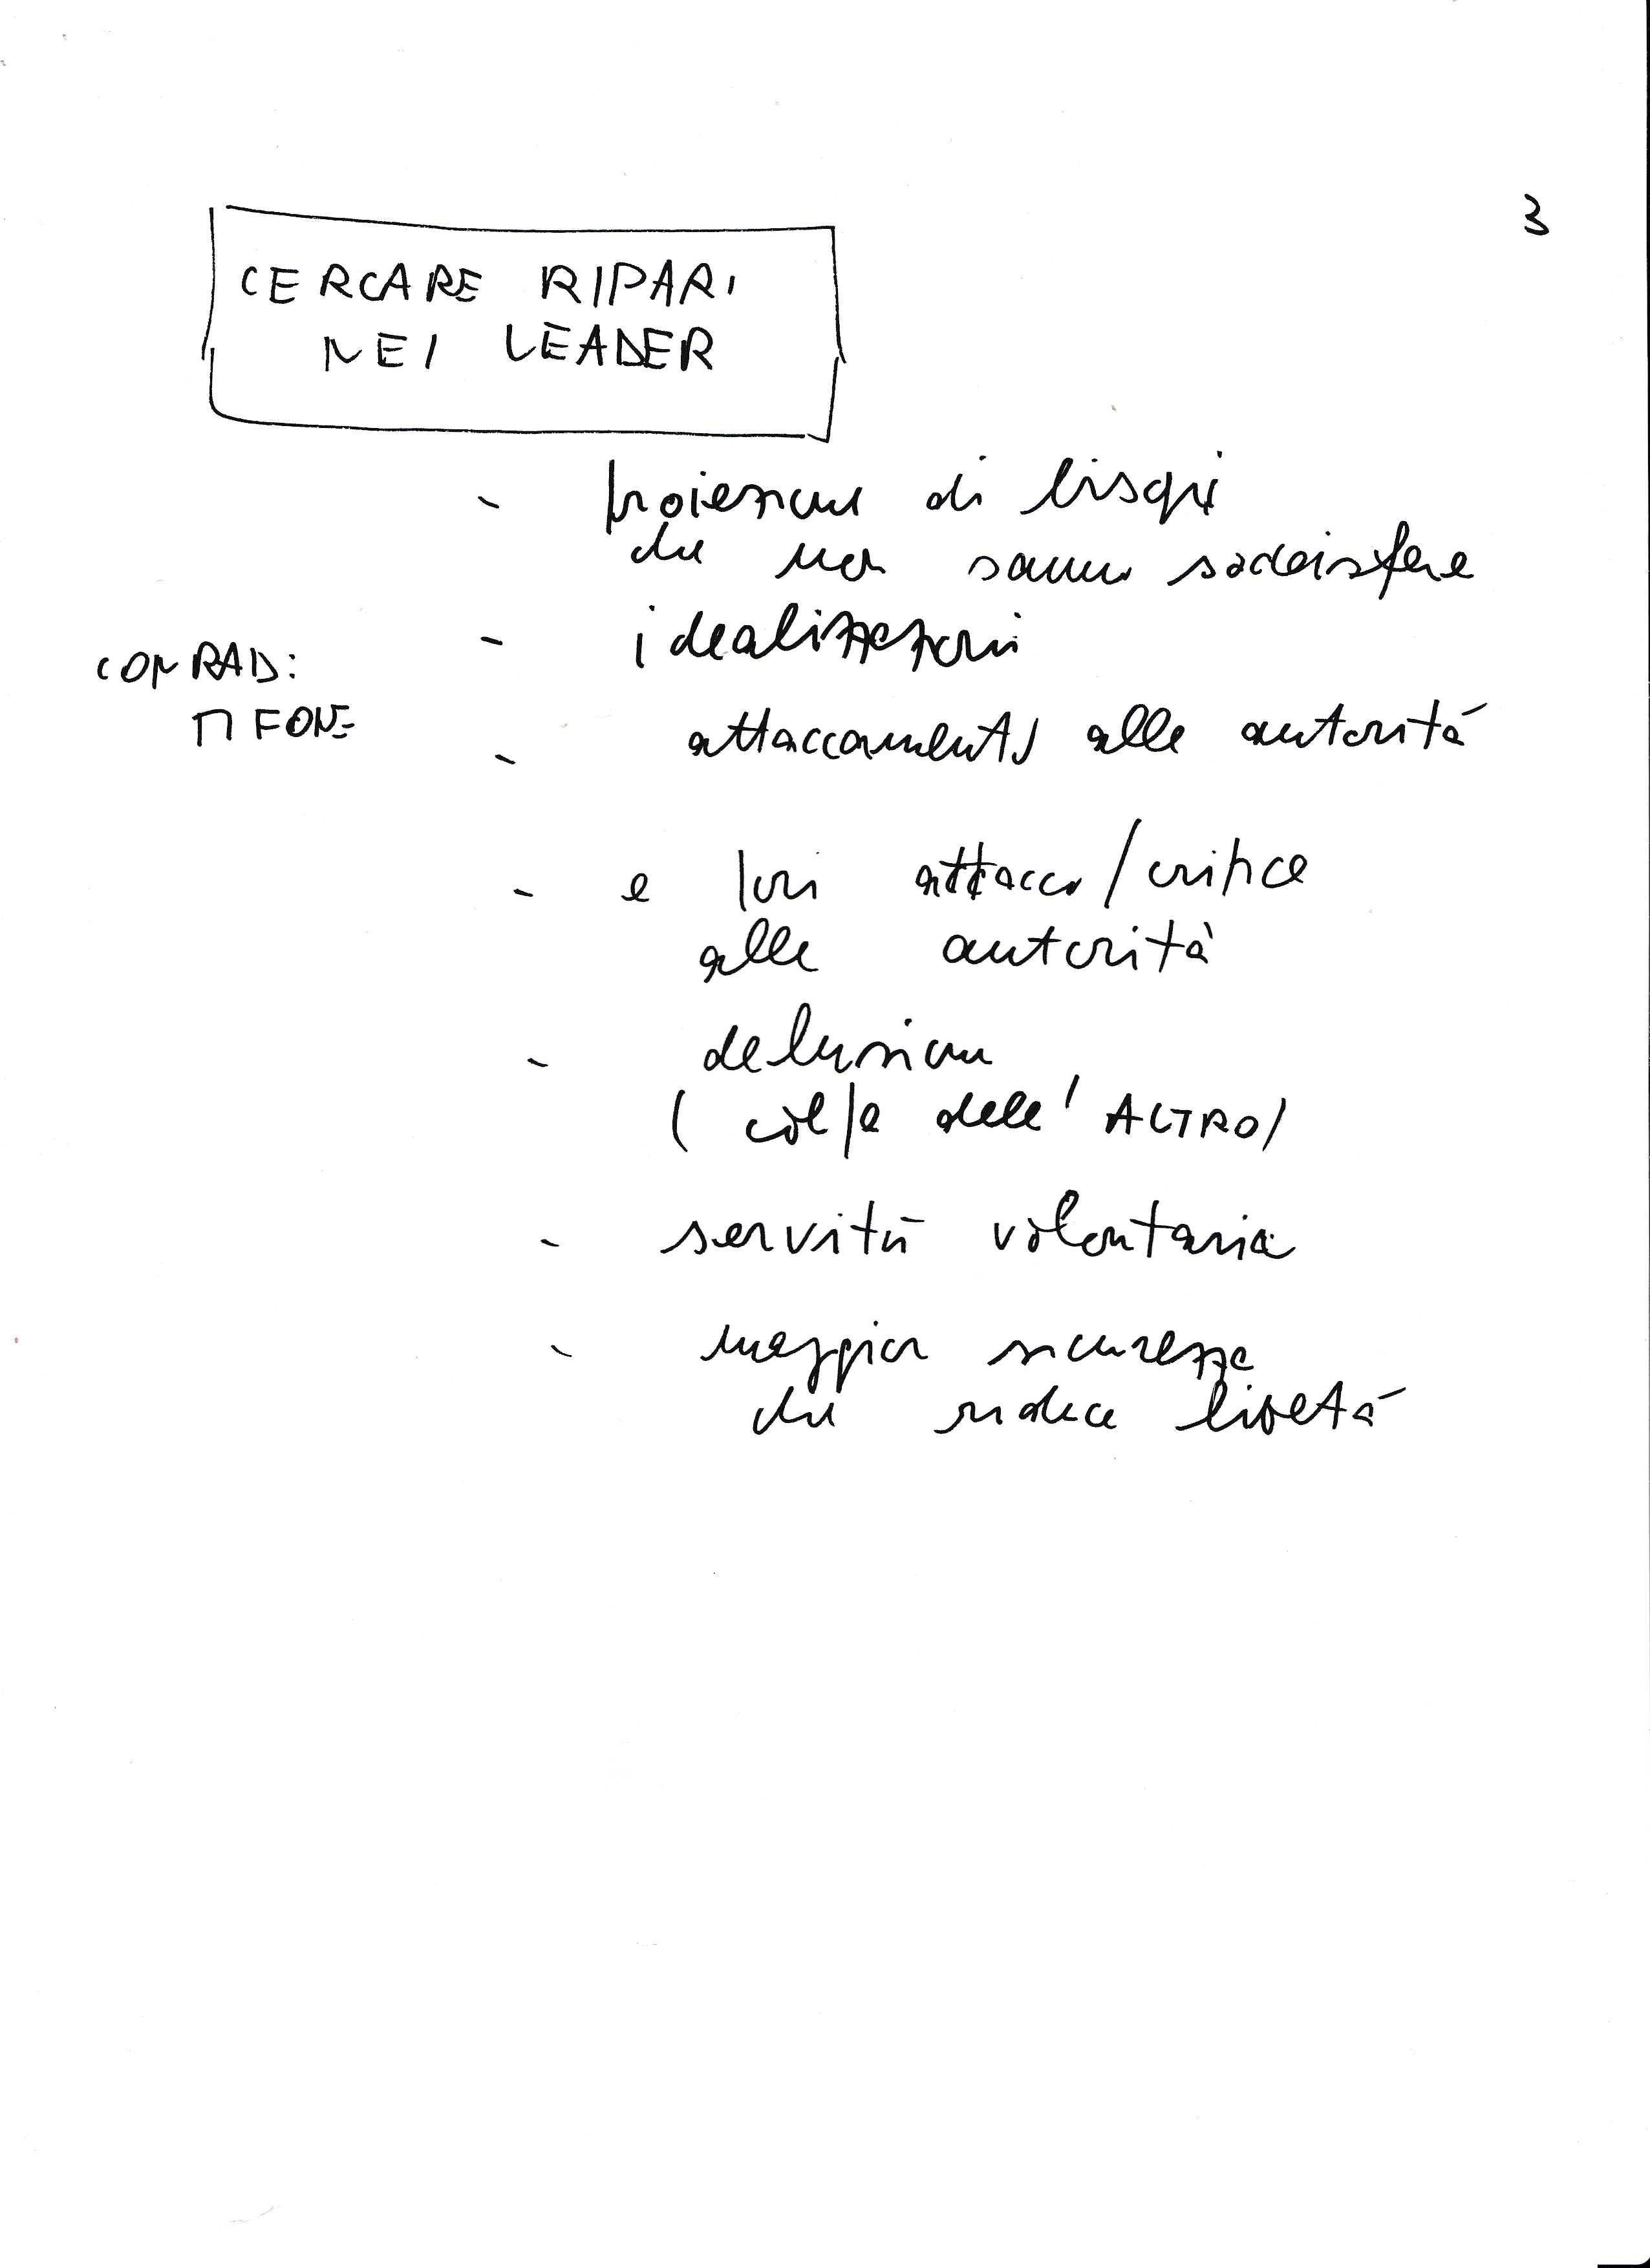 3
CERCARE RIPARI
NEI LEADER
- proiezioni di bisogni
che non sanno soddisfare
- idealizzazioni
CONRAD:
TIFONE
- attaccamento alle autorità
- e poi attacco/critica
alle autorità
- delusione
( colpa dell'ALTRO)
- servitù volontaria
- maggior sicurezza
che riduce libertà